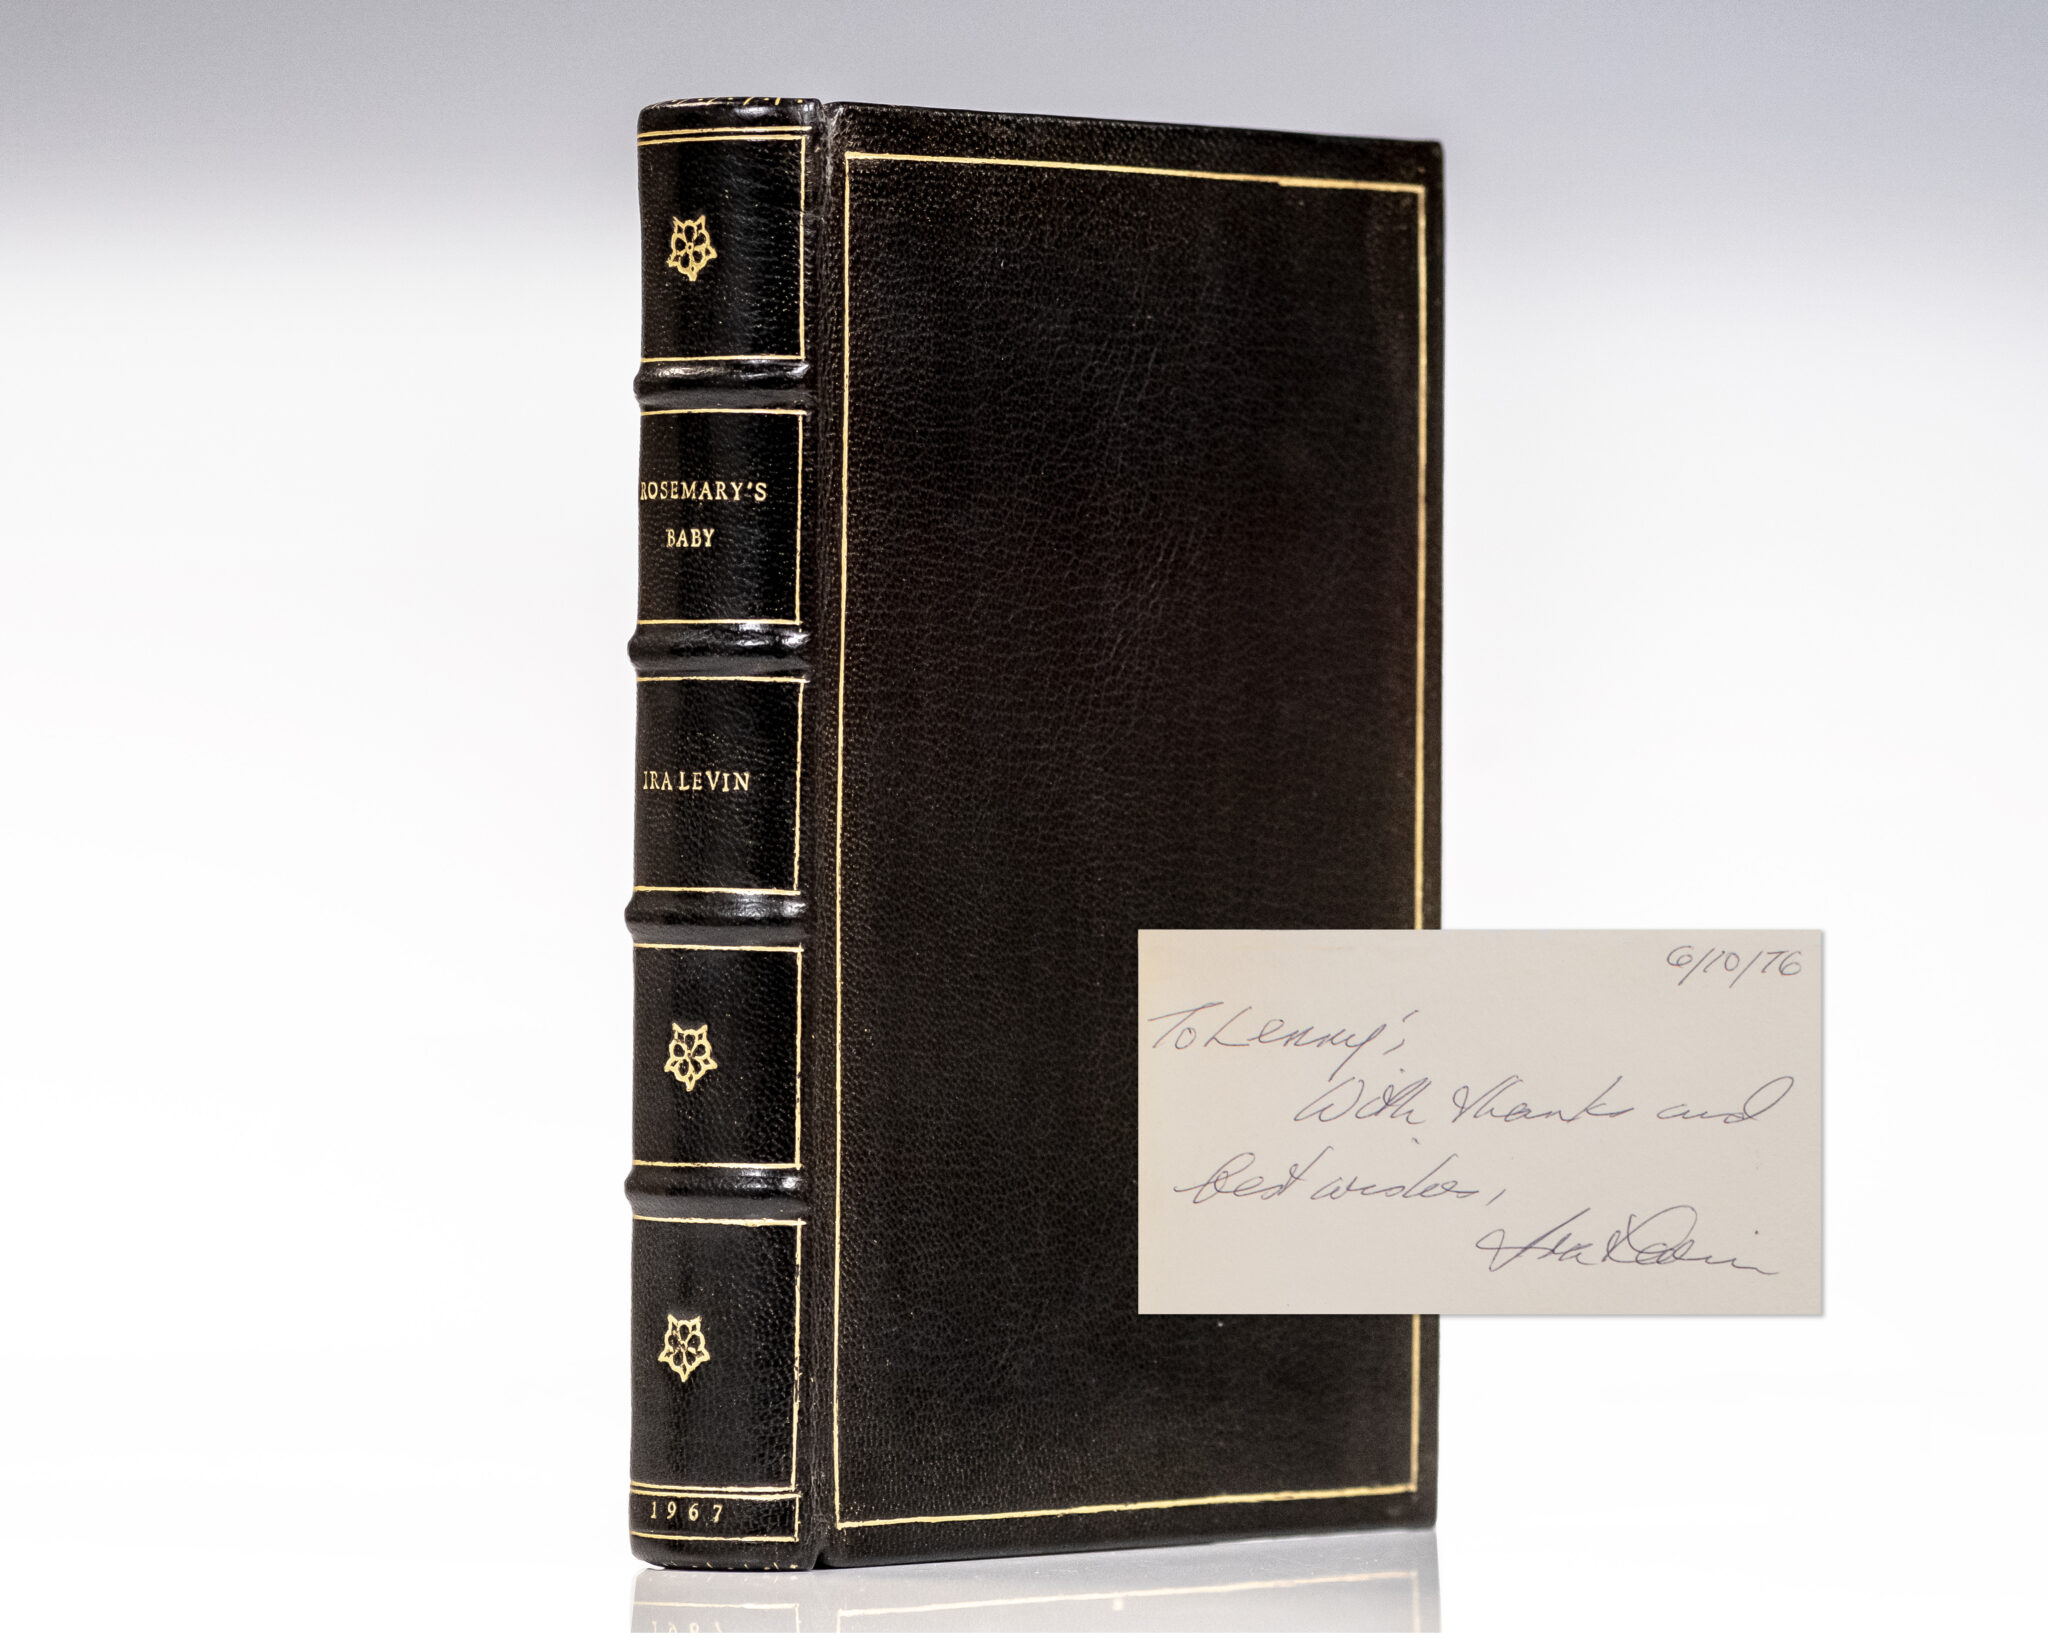 ROSEMARY'S
BABY
IRA LEVIN
1967
6/10/76
To Lenny,
With thanks and
best wishes,
Ira Levin